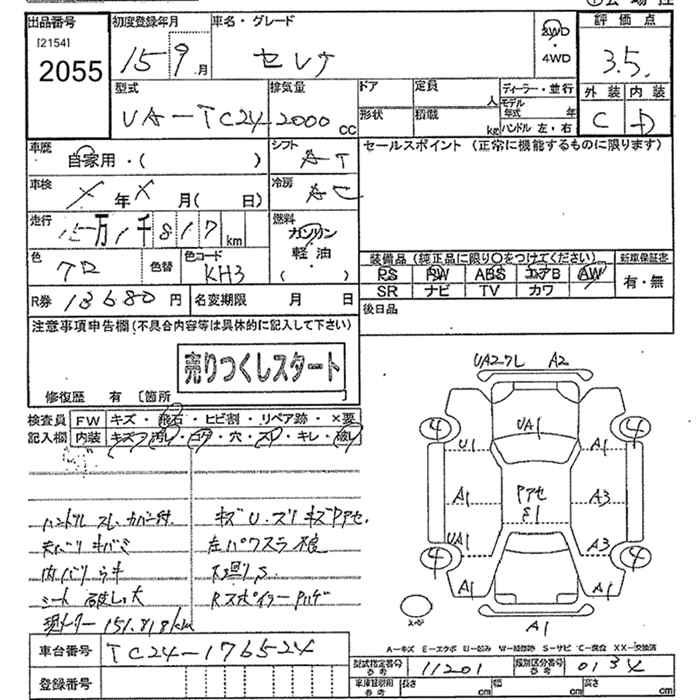 出品番号 初度登録年月 車名・グレード 2WD 評価点
[2154] 2055 15 9月 セレナ ・4WD 3.5
型式 排気量 ドア 定員 人 ディーラー・並行 外装 内装
UA-TC24 2000cc 形状 積載 kg モデル年式 年 C D
ハンドル 左・右
車歴 自家用・( ) シフト AT セールスポイント (正常に機能するものに限ります)
車検 X年X月( 日) 冷房 AC
走行 15万1千817km 燃料 ガソリン
軽油
( )
色 色替 色コード KH3 装備品 (純正品に限り〇をつけてください) 新車保証書
PS PW ABS エアB AW 有・無
R券 13680円 名変期限 月 日 SR ナビ TV カワ
注意事項申告欄(不具合内容等は具体的に記入して下さい) 後日品
売りつくしスタート
修復歴 有 [箇所 ]
検査員 FW キズ・飛石・ヒビ割・リペア跡・×要
記入欄 内装 キズ・汚レ・コゲ・穴・スレ・キレ・破レ
ハンドル スレ カバー付 キズU.ズリ キズPアセ.
天バリ キバミ 左パワスラ不良
内バリウキ 下廻りS
シート破レ大 RスポイラーPハゲ
現メーター151,818km
UA2ワレ A2
4 UA1 4
U1 A1
A1 Pアセ A3
S1
UA1 A3
4 4
A1 A1
A1
A=キズ E=エクボ U=凹み W=補修跡 S=サビ C=腐食 XX=交換済
車台番号 TC24-176524
登録番号
型式指定番号 参考 11201 類別区分番号 参考
車庫証明用 参考 長さ cm 幅 cm 高さ cm